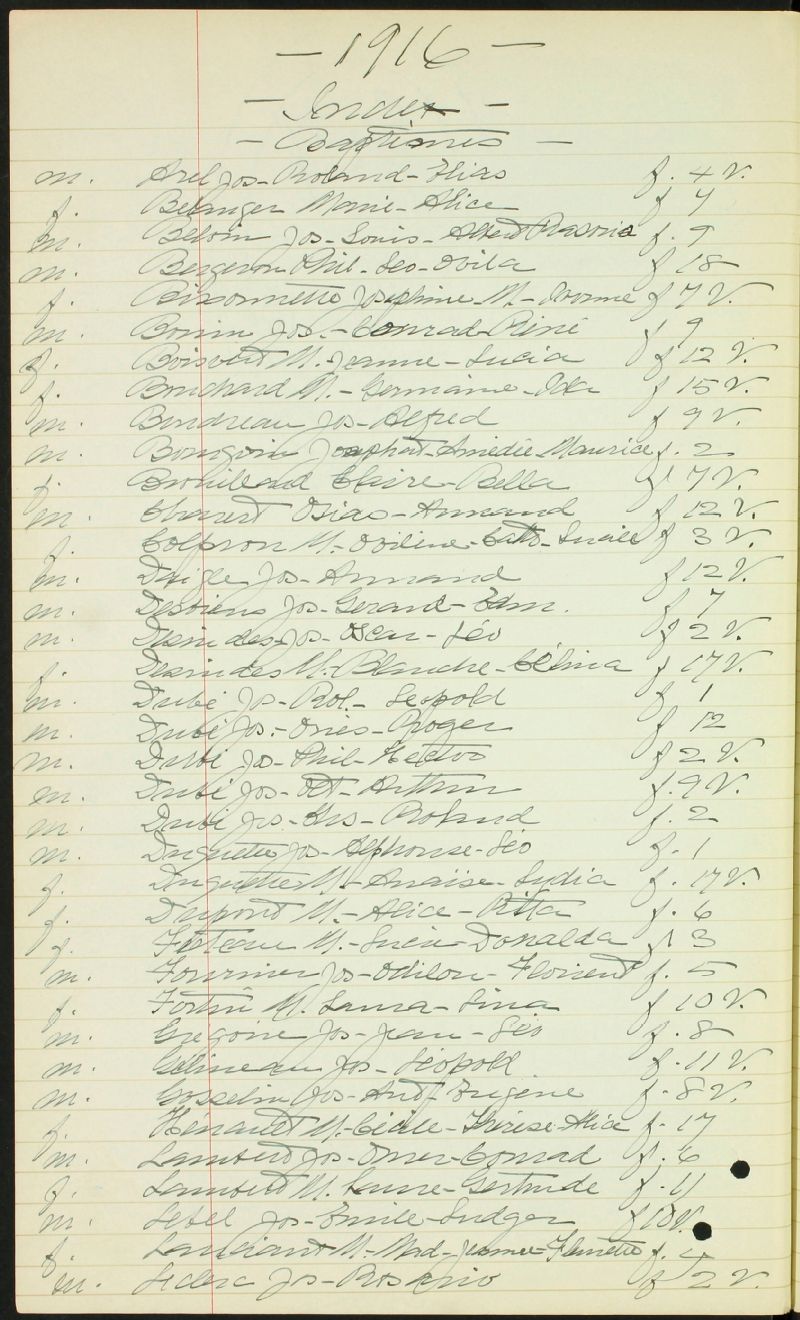 - 1916 -
- Index -
- Baptêmes -
m. Arel Jos - Roland - Elias f. 4 V.
f. Belanger Marie - Alice f 7
m. Beloin Jos - Louis - Albert f. 9
m. Bergeron Phil - Leo - Ovila f 18
f. Bissonnette Josephine M - Yvonne f 7 V.
m. Bonin Jos. - Conrad - Réné f 9
f. Boisvert M. Jeanne - Lucia f 12 V.
f. Bouchard M. - Germaine - Ida f 15 V.
m. Boudreau Jos - Alfred f 9 V.
m. Bourgoin Josaphat - Amédée Maurice f. 2
f. Brouillard Claire - Bella f 7 V.
m. Osias - Armand f 12 V.
f. Colpron M. - f 3 V.
m. Daigle Jos - Armand f 12 V.
m. Desbiens Jos - Gerard - Edm. f 7
m. Jos - Oscar - Léo f 2 V.
f. M. - Blanche - Célina f 17 V.
m. Dubé Jos - Rol. - Leopold f 1
m. Dubé Jos. - Roger f 12
m. Dubé Jos - Phil - Hector f 2 V.
m. Dubé Jos - Arthur f. 9 V.
m. Dubé Jos - Roland f. 2
m. Duquette Jos - Alphonse - Léo f. 1
f. Duquette M. - Anaïse - Lydia f. 17 V.
f. Dupont M. - Alice - Ritta f. 6
f. M. - Lucia - Donalda f 3
m. Fournier Jos - Odilon - Florient f. 5
f. Fortin M. Laura - Lina f 10 V.
m. Gregoire Jos - Jean - Léo f. 8
m. Gélineau Jos - Léopold f. 11 V.
m. Gosselin Jos - Ant - Eugène f. 8 V.
f. Hénault M. - Cécile - Thérèse - Alice f. 17
m. Lambert Jos - Omer - Conrad f. 6
f. Lambert M. Laure - Gertrude f. 11
m. Lebel Jos - Emile - Ludger f 18 V.
f. M. - Mad - Jeanne - f.
m. Leclerc Jos - Rosario f 2 V.